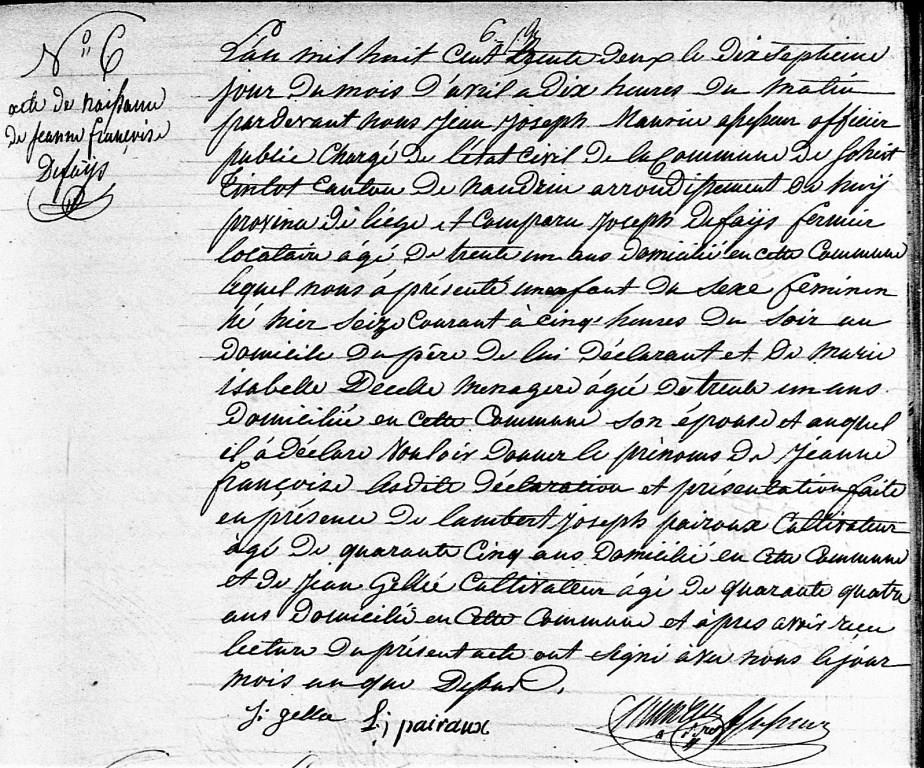 N° 6
acte de naissance
de jeanne françoise
Defays
6
L'an mil huit cent trente deux le dix septieme
jour du mois d'avril a dix heures du matin
pardevant nous jean joseph assesseur officier
public chargé de l'état civil de la commune de Soheit
Tinlot canton de nandrin arrondissement de huy
province de liége et comparu joseph Defays fermier
locataire âgé de trente un ans domicilié en cette commune
lequel nous à présenté un enfant du sexe feminin
né hier seize courant à cinq heures du soir au
domicile du père de lui déclarant et de marie
isabelle menagere âgée de trente un ans
domiciliée en cette commune son épouse et auquel
il à déclaré vouloir donner le prénoms de jeanne
françoise lesdite déclaration et présentation faite
en présence de lambert joseph pairoux cultivateur
âgé de quarante cinq ans domicilié en cette commune
et de jean Gellée cultivateur âgé de quarante quatre
ans domicilié en cette commune et àpres avoir reçu
lecture du présent acte ont signé avec nous le jour
mois an que
j: gelle L; j pairaux